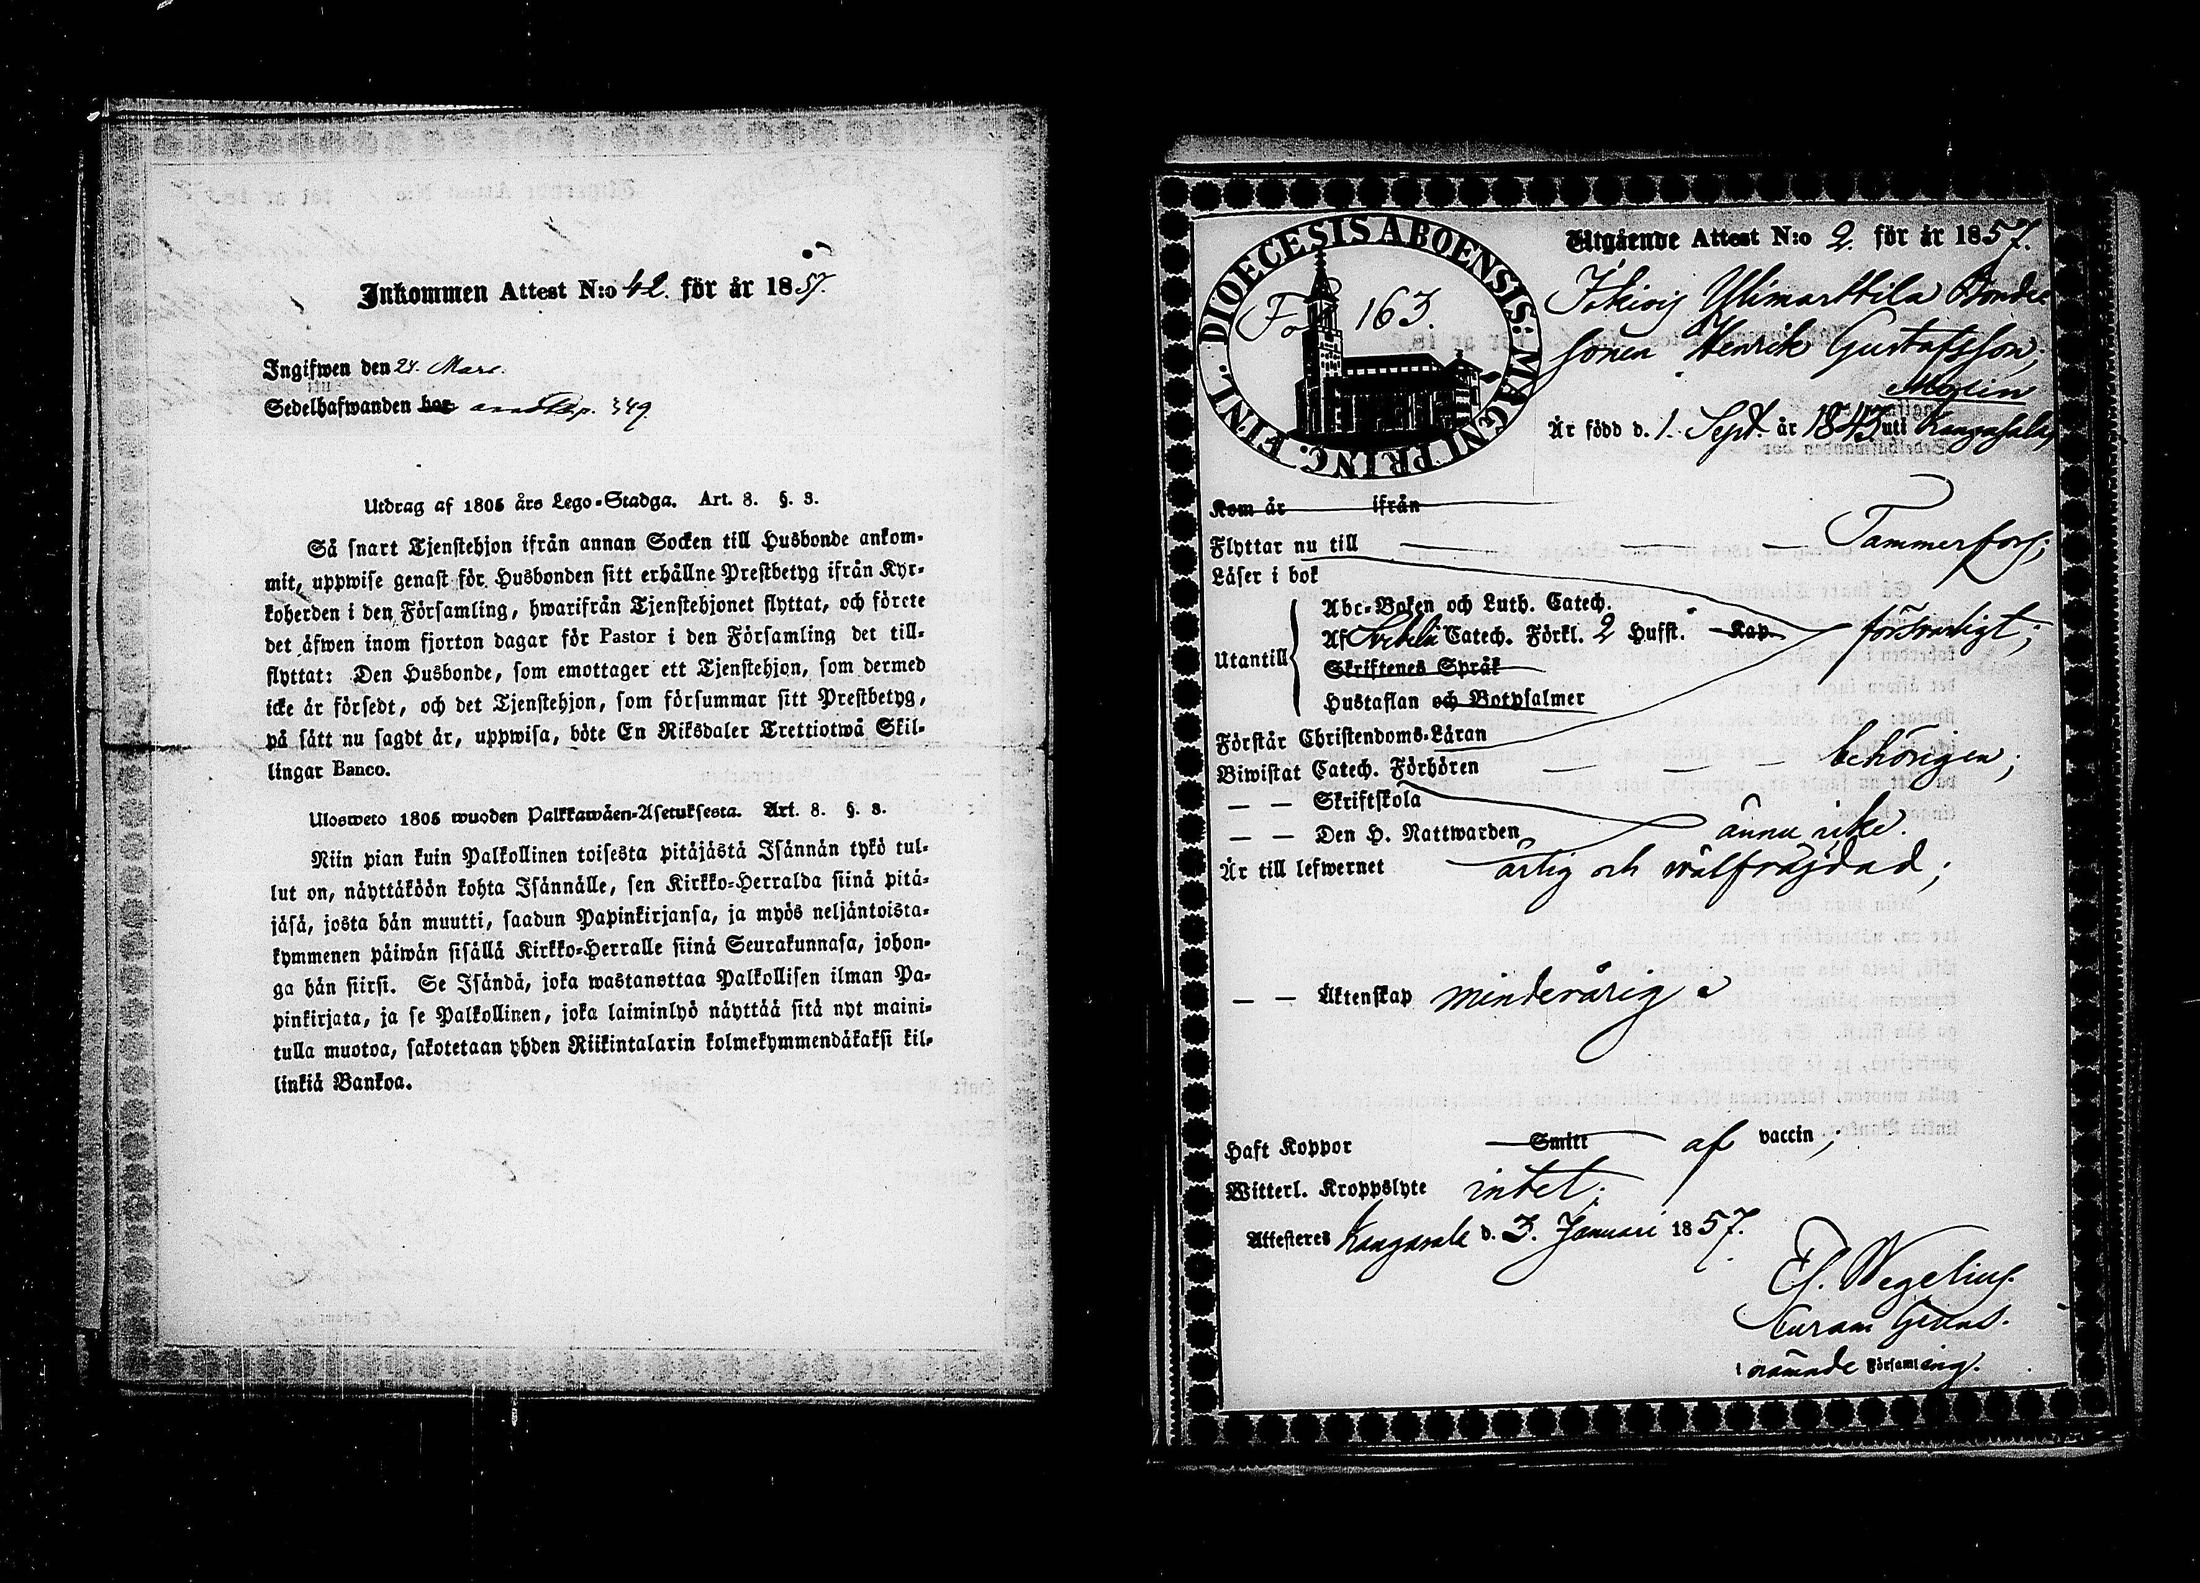 Inkommen Attest N:o 42. för år 1857.
Ingifwen den 24. Mars.
Sedelhafwanden bor p. 349
Utdrag af 1805 års Lego-Stadga. Art. 8. §. 3.
Så snart Tjenstehjon ifrån annan Socken till Husbonde ankom-
mit, uppwise genast för Husbonden sitt erhållne Prestbetyg ifrån Kyr-
koherden i den Församling, hwarifrån Tjenstehjonet flyttat, och förete
det äfwen inom fjorton dagar för Pastor i den Församling det till-
flyttat: Den Husbonde, som emottager ett Tjenstehjon, som dermed
icke är försedt, och det Tjenstehjon, som försummar sitt Prestbetyg,
på sätt nu sagdt är, uppwisa, böte En Riksdaler Trettiotwå Skil-
lingar Banco.
Ulosweto 1805 wuoden Palkkawäen-Asetuksesta. Art. 8. §. 3.
Niin pian kuin Palkollinen toisesta pitäjästä Isännän tykö tul-
lut on, näyttäköön kohta Isännälle, sen Kirkko-Herralda siinä pitä-
jäsä, josta hän muutti, saadun Papinkirjansa, ja myös neljäntoista-
kymmenen päiwän sisällä Kirkko-Herralle siinä Seurakunnasa, johon-
ga hän siirsi. Se Isändä, joka wastanottaa Palkollisen ilman Pa-
pinkirjata, ja se Palkollinen, joka laiminlyö näyttää sitä nyt maini-
tulla muotoa, sakotetaan yhden Riikintalarin kolmekymmendäkaksi kil-
linkiä Bankoa.
DIOECESIS ABOENSIS: MAGNI PRINC. FINL.
Fol 163.
Utgående Attest N:o 2. för år 1857.
Ylimarttila Bonde
sonen Henrik Gustafsson,
Är född d. 1. Sept. år 1843 uti Kangasala,
Kom år ifrån
Flyttar nu till Tammerfors;
Läser i bok
Abc-Boken och Luth. Catech.
Utantill Af Svebelii Catech. Förkl. 2 Hufst. Kap. försvarligt;
Skriftenes Språk
Hustaflan och Botpsalmer
Förstår Christendoms-Läran
Biwistat Catech. Förhören behörigen;
— — Skriftskola
— — Den H. Nattwarden ännu icke.
Är till lefwernet ärlig och wälfräjdad;
— — Äktenskap minderårig
Haft Koppor Smitt af vaccin;
Witterl. Kroppslyte intet;
Attesteres Kangasala d. 3. Januari 1857.
Wegelius.
nämnde Församling.